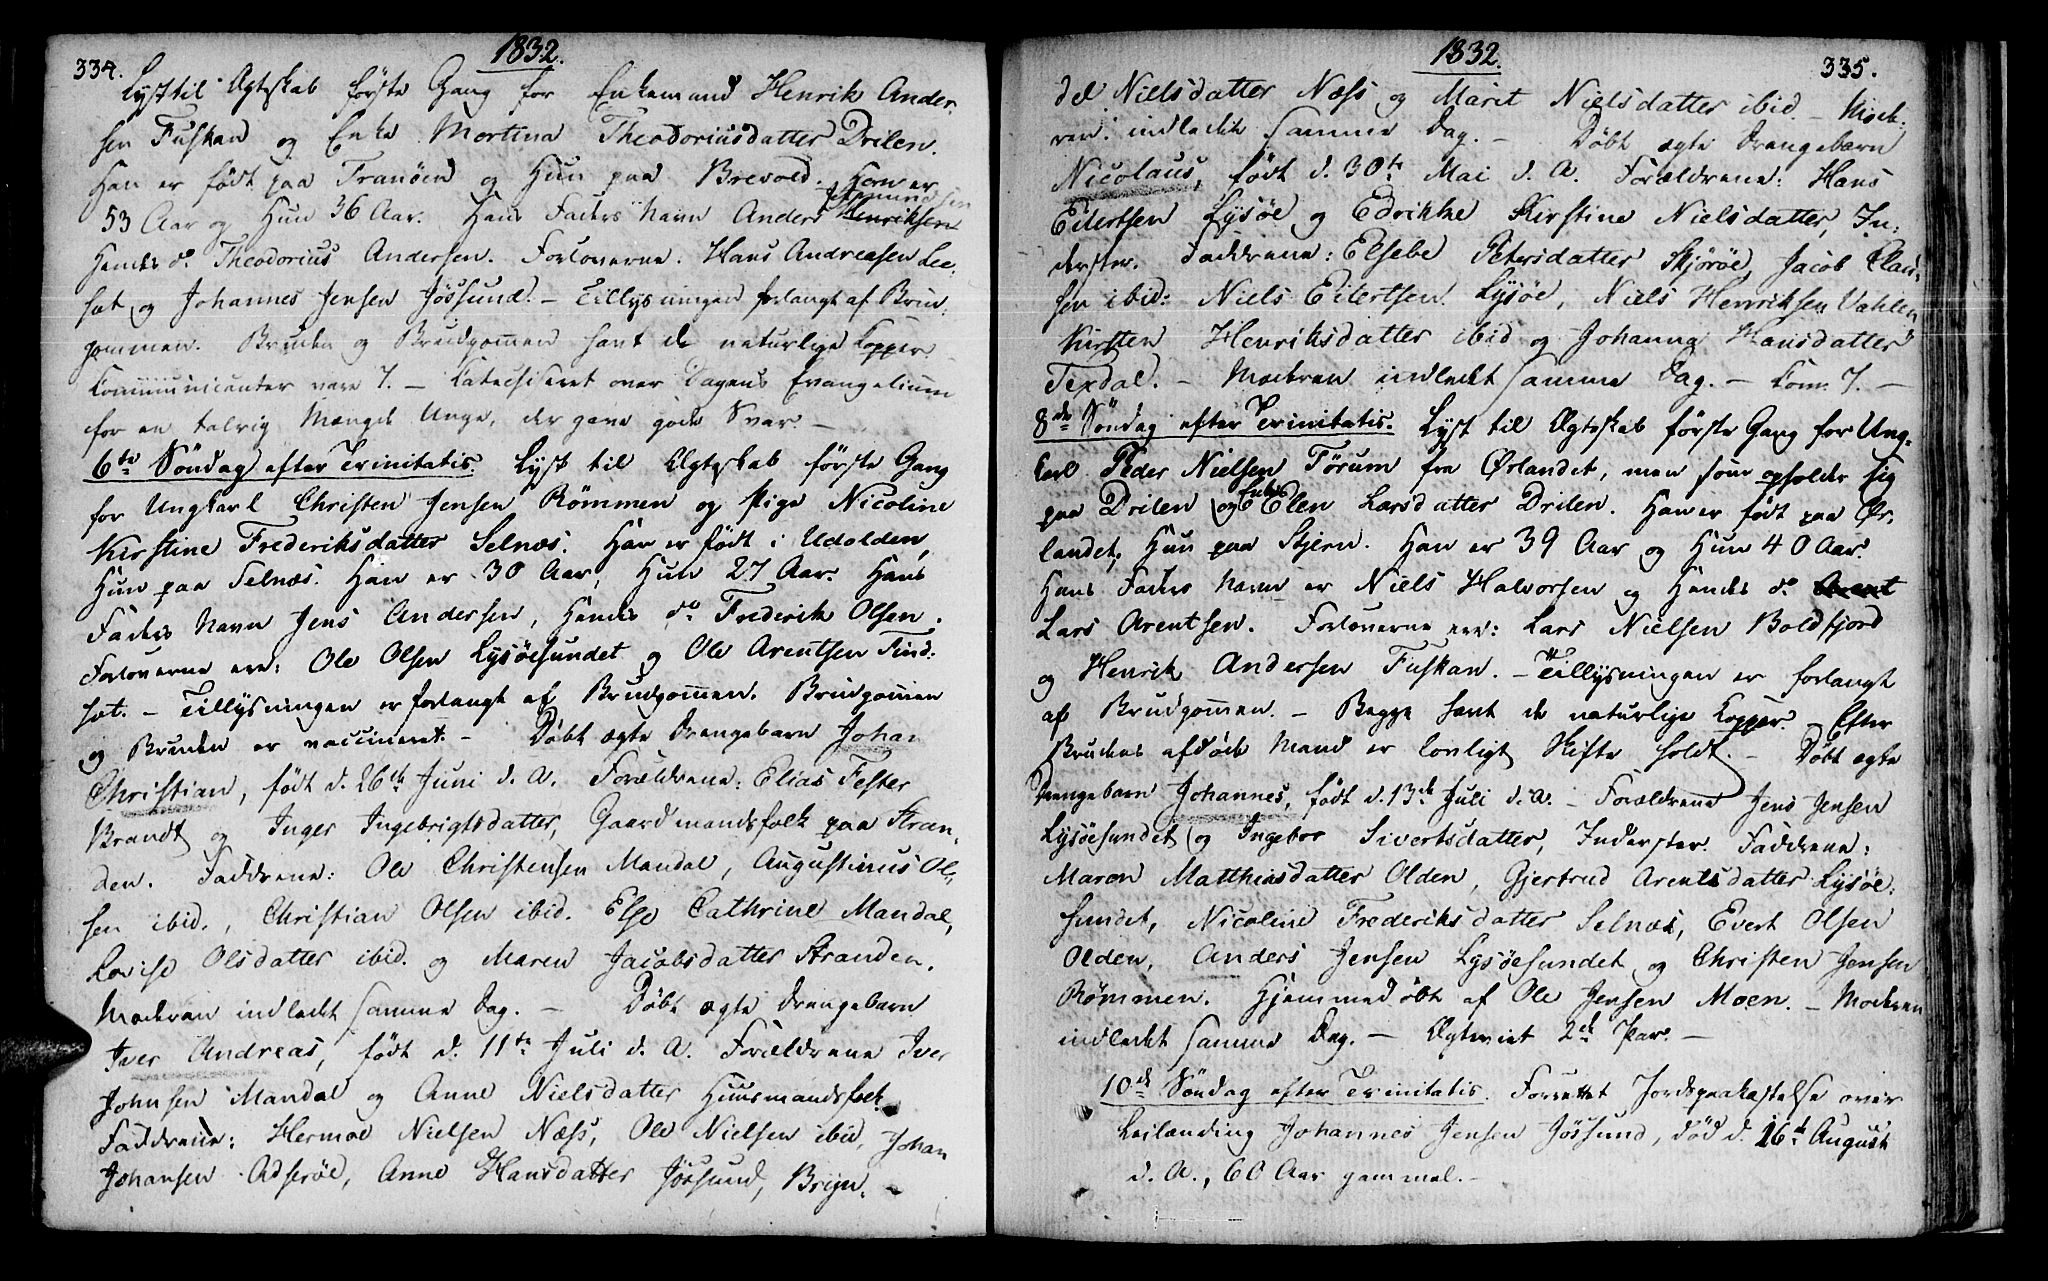 334.
1832.
Lyst til Ægteskab første Gang for Enkemand Henrik Ander-
sen Fuskan og Enke Martina Theodoriusdatter Drilen.
Han er født paa Tranöen og Hun paa Brevold. Han er
53 Aar og Hun 36 Aar. Hans Faders Navn Anders Henriksen
Hendes do Theodorius Andersen. Forloverne: Hans Andreasen Lee-
set og Johannes Jensen Jössund. - Tillysningen forlangt af Brud-
gommen. Bruden og Brudgommen havt de naturlige Kopper.
Communicanter vare 7. - Catechiseret over Dagens Evangelium
for en talrig Mængde Unge, der gave gode Svar -
6te Söndag efter Trinitatis. Lyst til Ægteskab første Gang
for Ungkarl Christen Jensen Römmen og Pige Nicoline
Kirstine Frederiksdatter Selnæs. Han er født i Udolden,
Hun paa Selnæs. Han er 30 Aar, Hun 27 Aar. Hans
Faders Navn Jens Andersen, Hendes do Frederik Olsen.
Forloverne ere: Ole Olsen Lysöesundet og Ole Arentsen Find-
set. - Tillysningen er forlangt af Brudgommen. Brudgommen
og Bruden er vaccineret. - Døbt ægte Drengebarn Johan
Christian, født d. 26de Juni d. A. Forældrene: Elias Fester
Brandt og Inger Ingebrigtsdatter, Gaardmandsfolk paa Stran-
den. Faddrene: Ole Christensen Mandal, Augustinus Ol-
sen ibid., Christian Olsen ibid. Else Cathrine Mandal,
Lovise Olsdatter ibid. og Maren Jacobsdatter Stranden.
Moderen indledt samme Dag. - Døbt ægte Drengebarn
Iver Andreas, født d. 11te Juli d. A. Forældrene Iver
Johnsen Mandal og Anne Nielsdatter Huusmandsfolk.
Faddrene: Hermoe Nielsen Næss, Ole Nielsen ibid, Johan
Johansen Adseröe, Anne Hansdatter Jössund, Bryn-
1832.
335.
del Nielsdatter Næss og Marit Nielsdatter ibid. - Mode-
ren indledt samme Dag. - Døbt ægte Drengebarn
Nicolaus, født d. 30te Mai d. A. Forældrene: Hans
Eilertsen Lysöe og Edrikke Kirstine Nielsdatter, In-
derster. Faddrene: Elsebe Petersdatter Skjöröe, Jacob Clau-
sen ibid: Niels Eilertsen Lysöe, Niels Henriksen Vahlen
Kirsten Henriksdatter ibid og Johanna Hansdatter
Texdal. - Moderen indledt samme Dag. - Com. 7. -
8de Söndag efter Trinitatis. Lyst til Ægteskab første Gang for Ung-
karl Peder Nielsen Förum fra Ørlandet, men som opholder sig
paa Drilen og Enke Elen Larsdatter Drilen. Han er født paa Ør-
landet, Hun paa Stjern. Han er 39 Aar og Hun 40 Aar.
Hans Faders Navn er Niels Halvorsen og Hendes do Arent
Lars Arentsen. Forloverne ere: Lars Nielsen Boldfjord
og Henrik Andersen Fuskan. - Tillysningen er forlangt
af Brudgommen. - Begge havt de naturlige Kopper. - Efter
Brudens afdøde Mand er lovligt Skifte holdt. - Døbt ægte
Drengebarn Johannes, født d. 13de Juli d. A. - Forældrene Jens Jensen
Lysöesundet og Ingebor Sivertsdatter, Inderster. Faddrene:
Maren Matthiasdatter Olden, Gjertrud Arentsdatter Lysöe-
sundet, Nicoline Frederiksdatter Selnæs, Evert Olsen
Olden, Anders Jensen Lysöesundet og Christen Jensen
Römmen. Hjemmedøbt af Ole Jensen Moen. - Moderen
indledt samme Dag. - Ægteviet 2de Par. -
10de Söndag efter Trinitatis. Forrettet Jordspaakastelse over
Leilænding Johannes Jensen Jössund, död d. 16de August
d. A., 60 Aar gammel. -